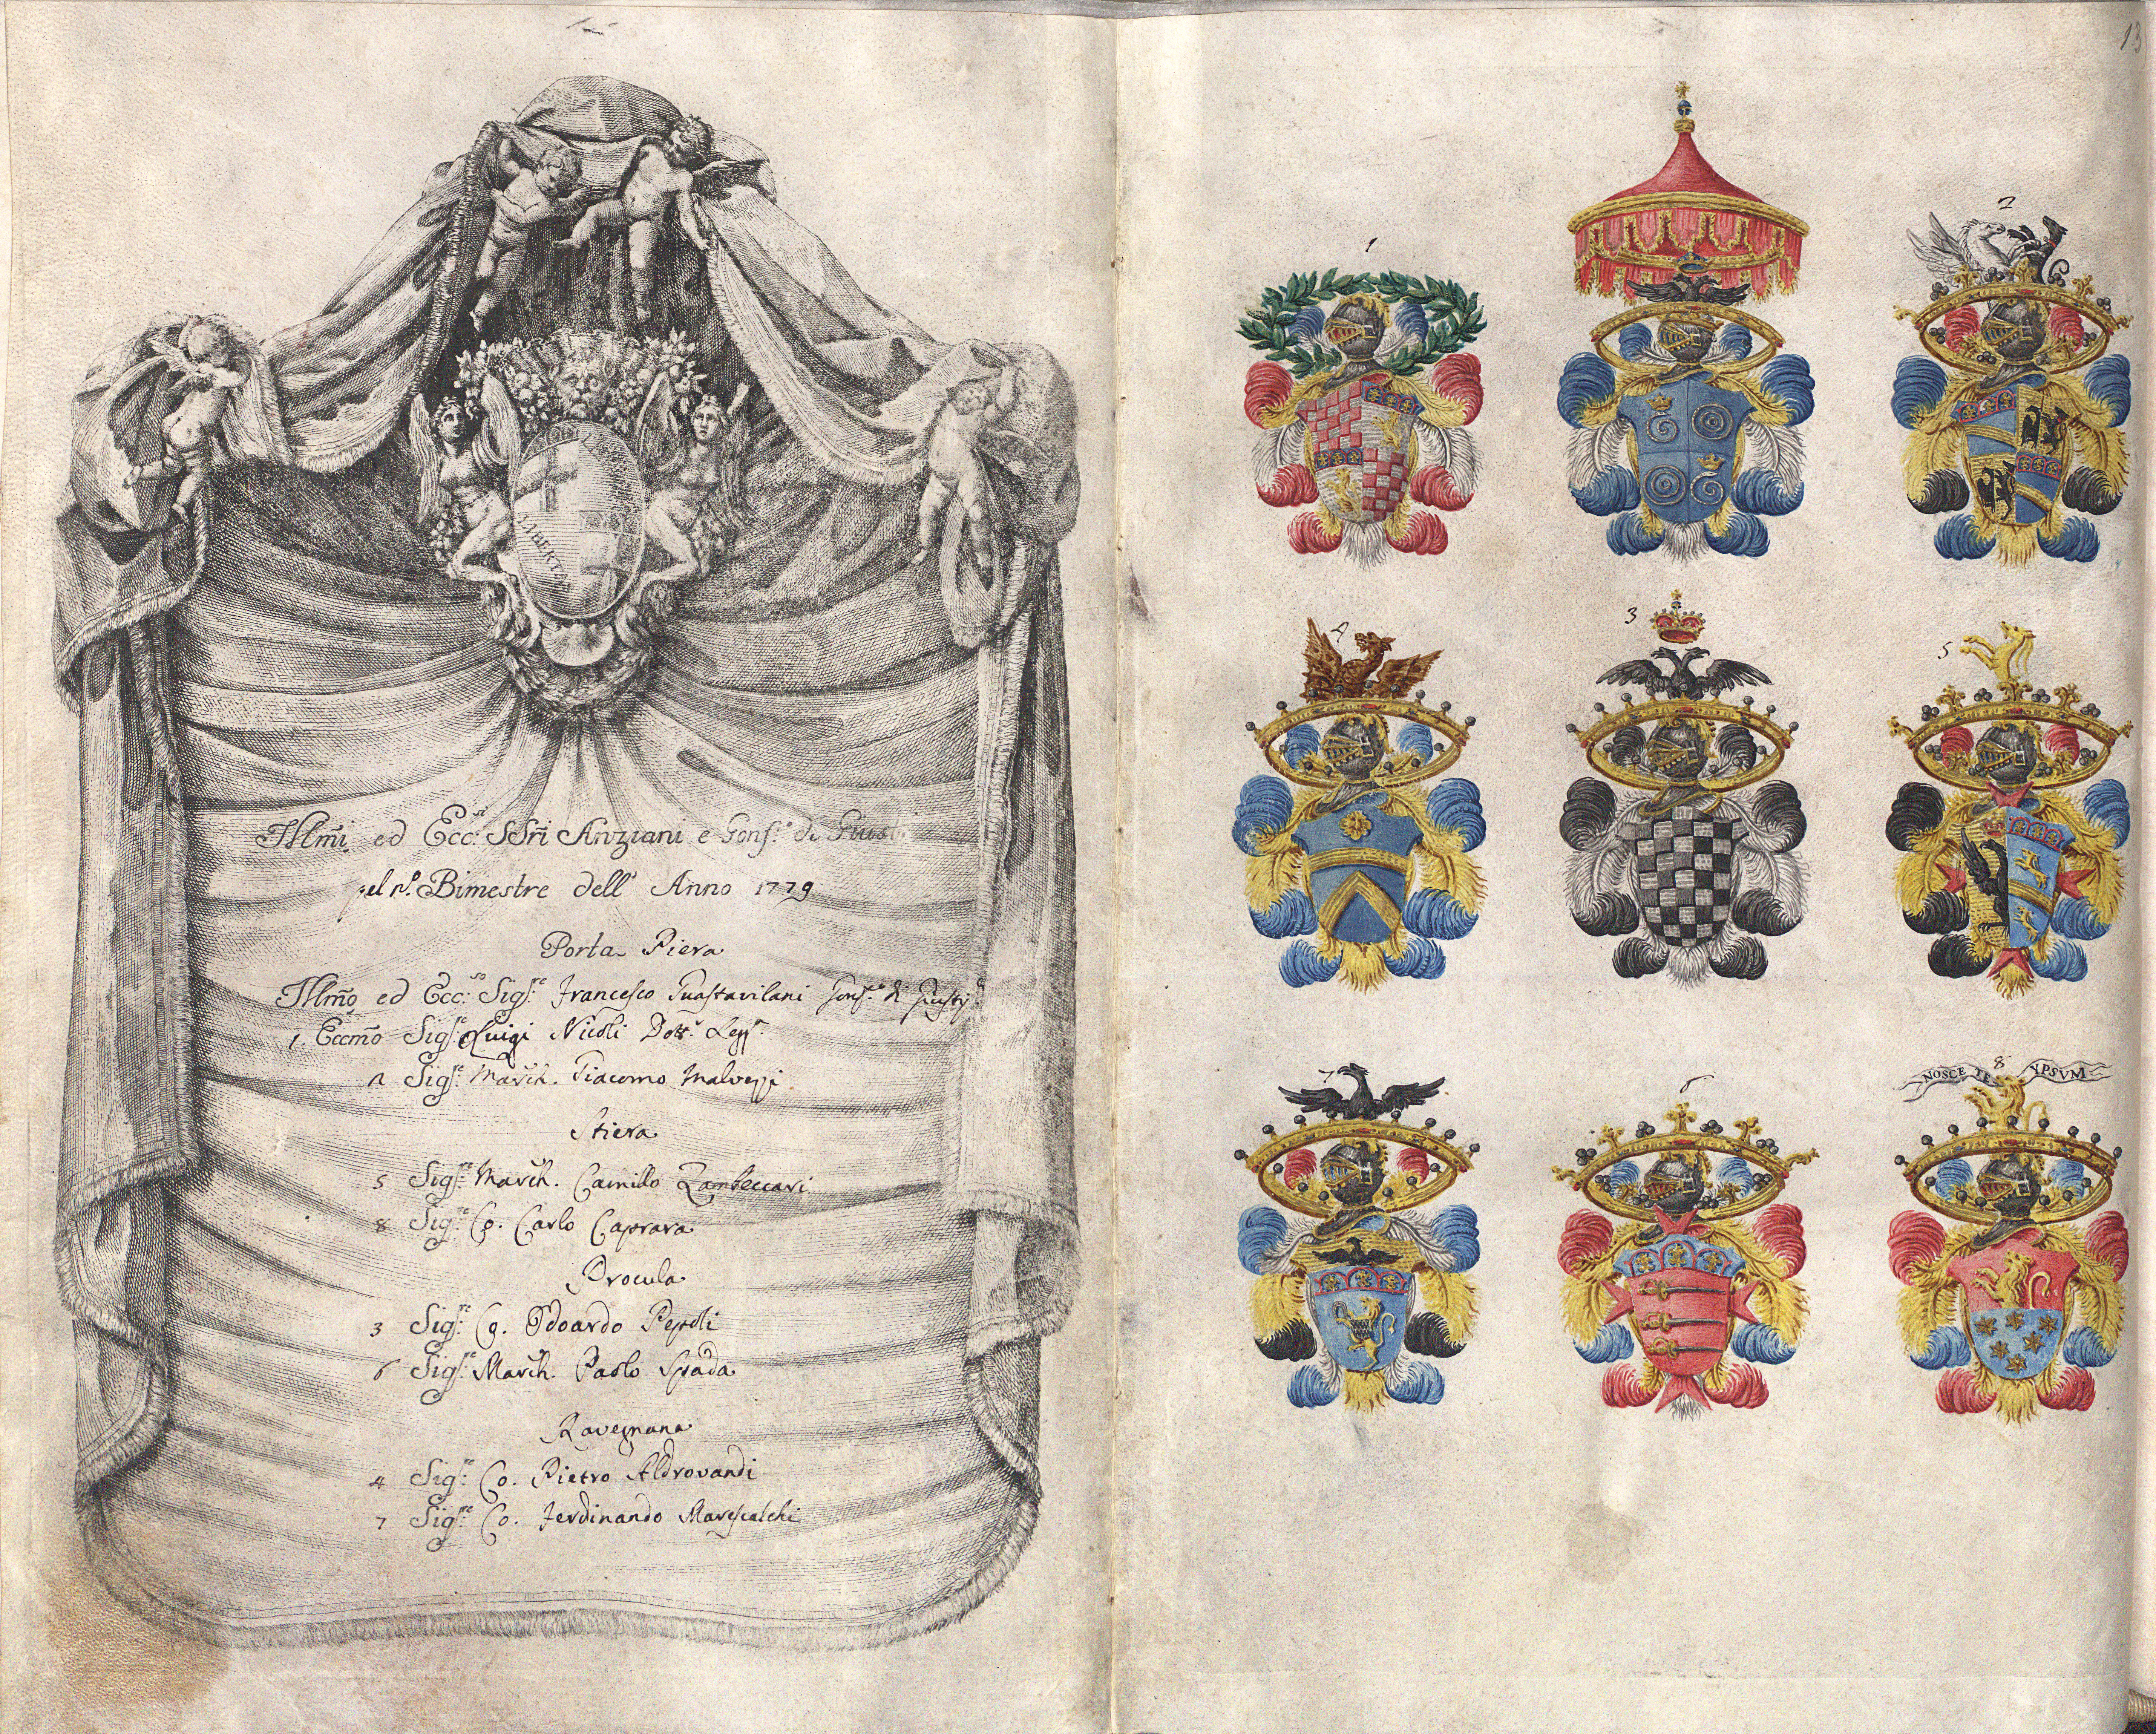 LIBERTAS
Illm̃i ed Ecc:si SSri Anziani e Gonf.e di Giust.
pel Bimestre dell' Anno 1779
Porta Piera
Illm̃o ed Ecc:so Sig.re Francesco Guastavilani Gonf.re di Giustiz.a
1. Eccm̃o Sig.re Luigi Nicoli Dott.r Legg.
2 Sig.re March. Giacomo Malvezzi
Stiera
5 Sig.re March. Camillo Zambeccari
8 Sig.re Co. Carlo Caprara
Procula
3 Sig.re Co. Odoardo Pepoli
6 Sig.re March. Paolo Spada
Ravegnana
4 Sig.re Co. Pietro Aldrovandi
7 Sig.re Co. Ferdinando Marescalchi
13
1
2
4
3
5
7
6
8
NOSCE TE YPSVM